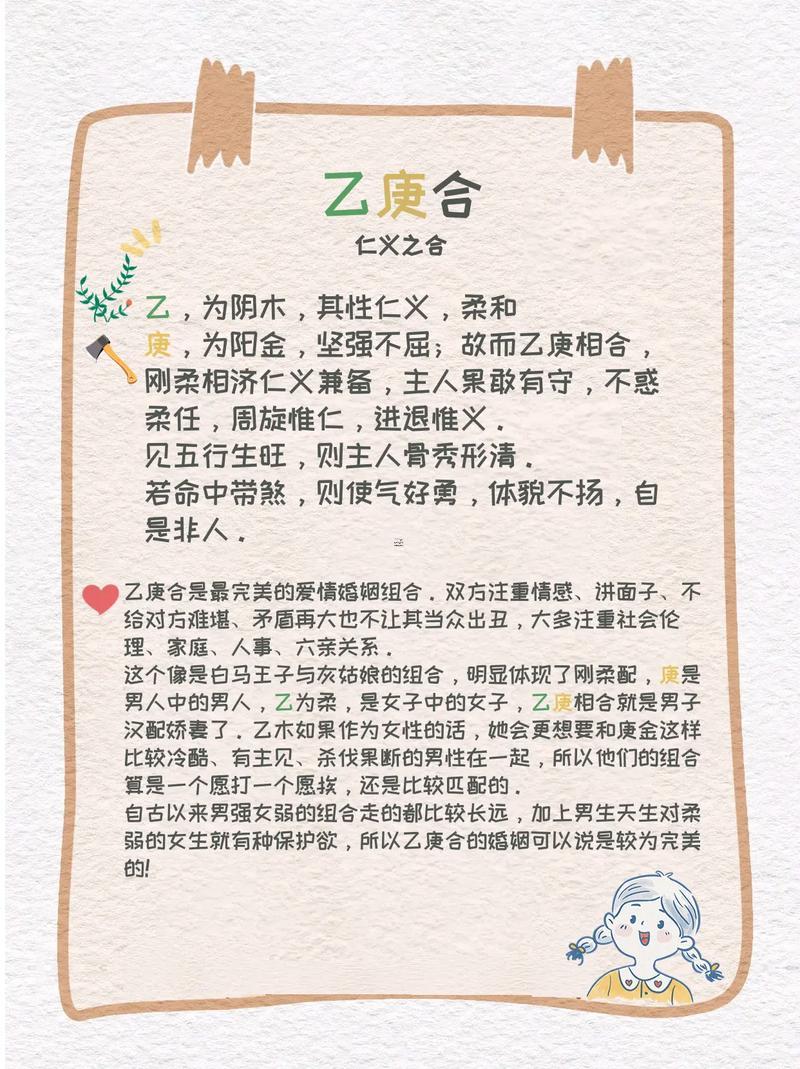 乙庚合
仁义之合
乙，为阴木，其性仁义，柔和
庚，为阳金，坚强不屈；故而乙庚相合，
刚柔相济仁义兼备，主人果敢有守，不惑
柔任，周旋惟仁，进退惟义．
见五行生旺，则主人骨秀形清．
若命中带煞，则使气好勇，体貌不扬，自
是非人．
乙庚合是最完美的爱情婚姻组合．双方注重情感、讲面子、不
给对方难堪、矛盾再大也不让其当众出丑，大多注重社会伦
理、家庭、人事、六亲关系．
这个像是白马王子与灰姑娘的组合，明显体现了刚柔配，庚是
男人中的男人，乙为柔，是女子中的女子，乙庚相合就是男子
汉配娇妻了．乙木如果作为女性的话，她会更想要和庚金这样
比较冷酷、有主见、杀伐果断的男性在一起，所以他们的组合
算是一个愿打一个愿挨，还是比较匹配的．
自古以来男强女弱的组合走的都比较长远，加上男生天生对柔
弱的女生就有种保护欲，所以乙庚合的婚姻可以说是较为完美
的!